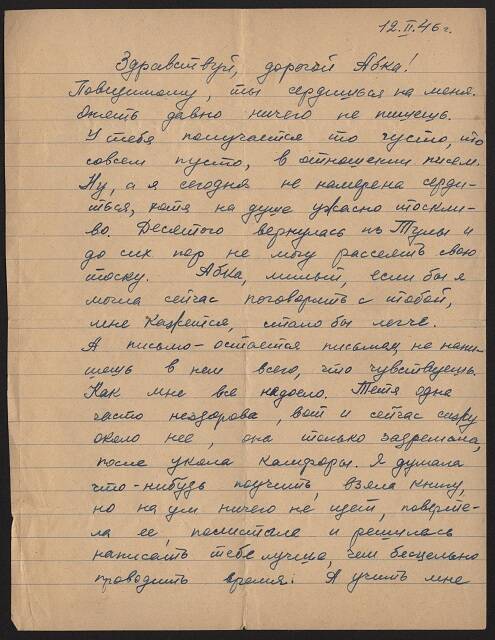 12.II.46г.
Здравствуй, дорогой Абка!
Повидимому, ты сердишься на меня.
Опять давно ничего не пишешь.
У тебя получается то густо, что
совсем пусто, в отношении писем.
Ну, а я сегодня не намерена серди-
ться, хотя на душе ужасно тоскли-
во. Десятого вернулась из Тулы и
до сих пор не могу рассеять свою
тоску. Абка, милый, если бы я
могла сейчас поговорить с тобой,
мне кажется, стало бы легче.
А письмо - остается письмом, не напи-
шешь в нем всего, что чувствуешь.
Как мне все надоело. Тетя одна
часто нездорова, вот и сейчас сижу
около нее, она только задремала,
после укола камфоры. Я думала
что-нибудь поучить, взяла книгу,
но на ум ничего не идет, поверте-
ла ее, полистала и решилась
написать тебе лучше, чем бесцельно
проводить время. А учить мне